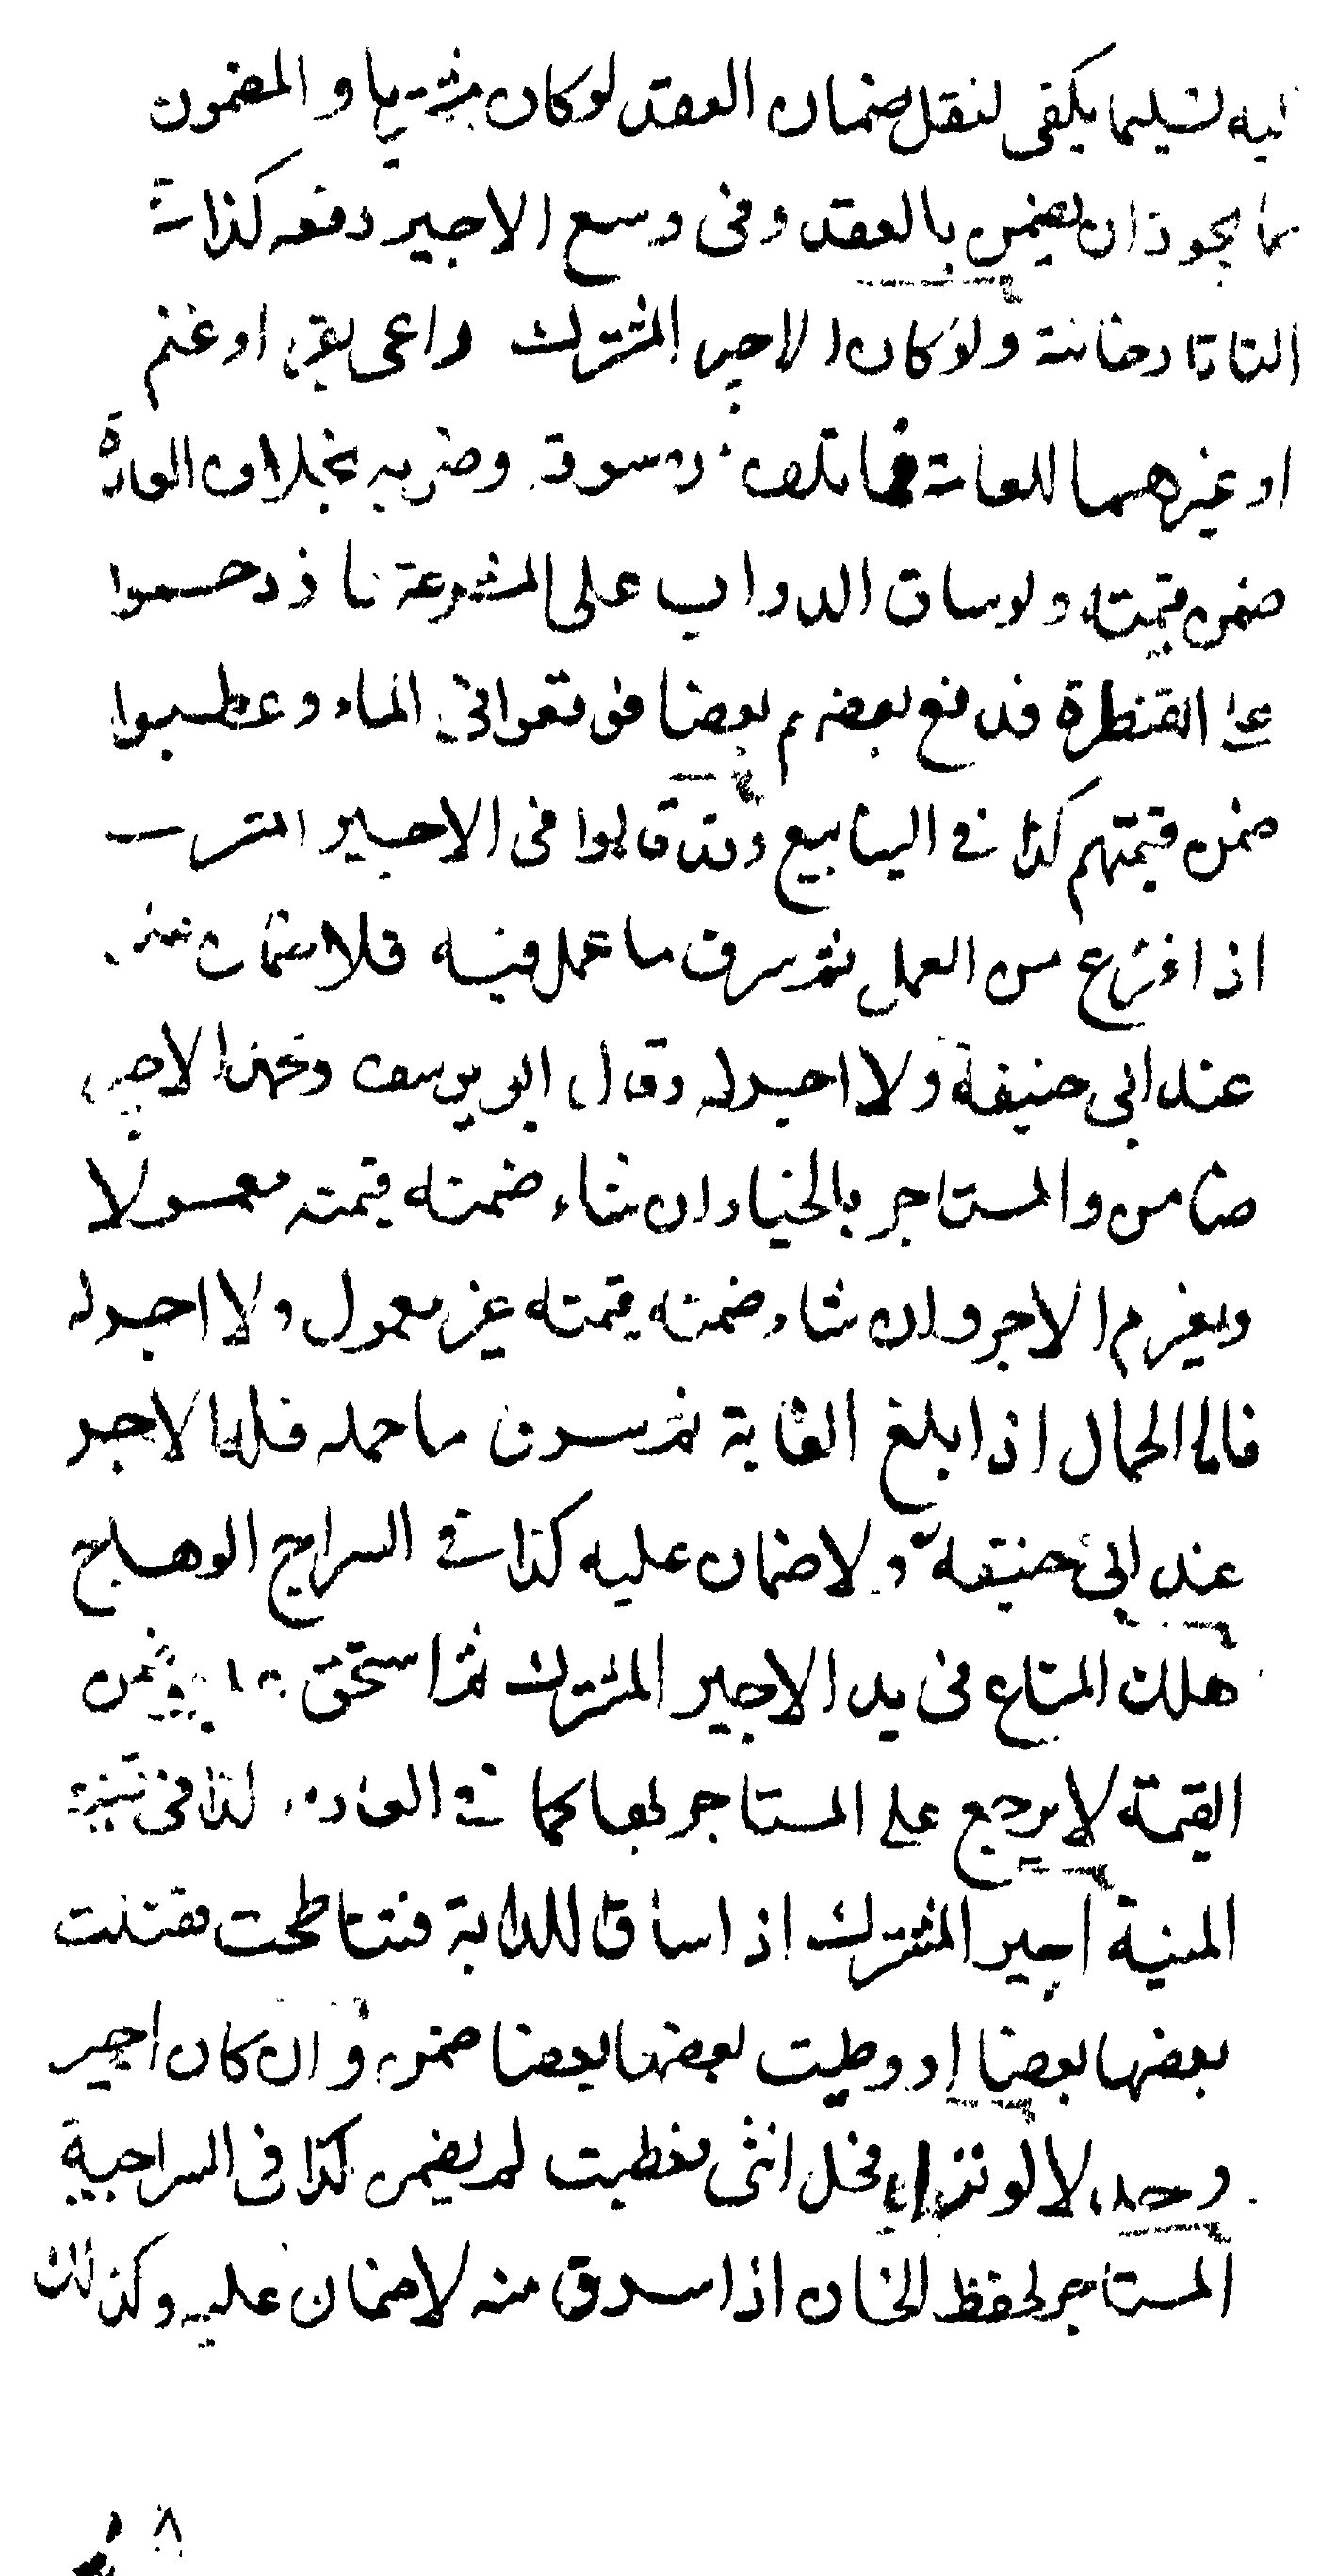 ليه تسليما يكفى لنقل ضمان العقد لو كان مشتريا والمضمون
مما يجوز ان يضمن بالعقد وفى وسع الاجير دفعه كذا فى
التاتارخانية ولو كان الاجير المشترك راعى بقر او غنم
او غيرهما للعامة فما تلف من سوقه وضربه بخلاف العادة
ضمن قيمته ولو ساق الدواب على المشرعة فازدحموا
على القنطرة فدفع بعضهم بعضا فوقعوا فى الماء وعطبوا
ضمن قيمتهم كذا فى الينابيع وقد قالوا فى الاجير المشترك
اذا فرغ من العمل ثم سرق ما عمل فيه فلا ضمان عليه
عند ابى حنيفة ولا اجر له وقال ابو يوسف ومحمد الاجير
ضامن والمستاجر بالخيار ان شاء ضمنه قيمته معمولا
ويغرم الاجر وان شاء ضمنه قيمته غير معمول ولا اجر له
فاما الحمال اذا بلغ الغاية ثم سرق ما حمله فله الاجر
عند ابى حنيفة ولا ضمان عليه كذا فى السراج الوهاج
هلك المتاع فى يد الاجير المشترك ثم استحق وضمن
القيمة لا يرجع على المستاجر كما فى العارية كذا فى قنية
المنية اجير المشترك اذا ساق للدابة فتناطحت فقتلت
بعضها بعضا او وطيت بعضها بعضا ضمن وان كان اجير
وحد لا لو نزا فحل انثى فعطبت لم يضمن كذا فى السراجية
المستاجر لحفظ الخان اذا سرق منه لا ضمان عليه وكذلك
٨